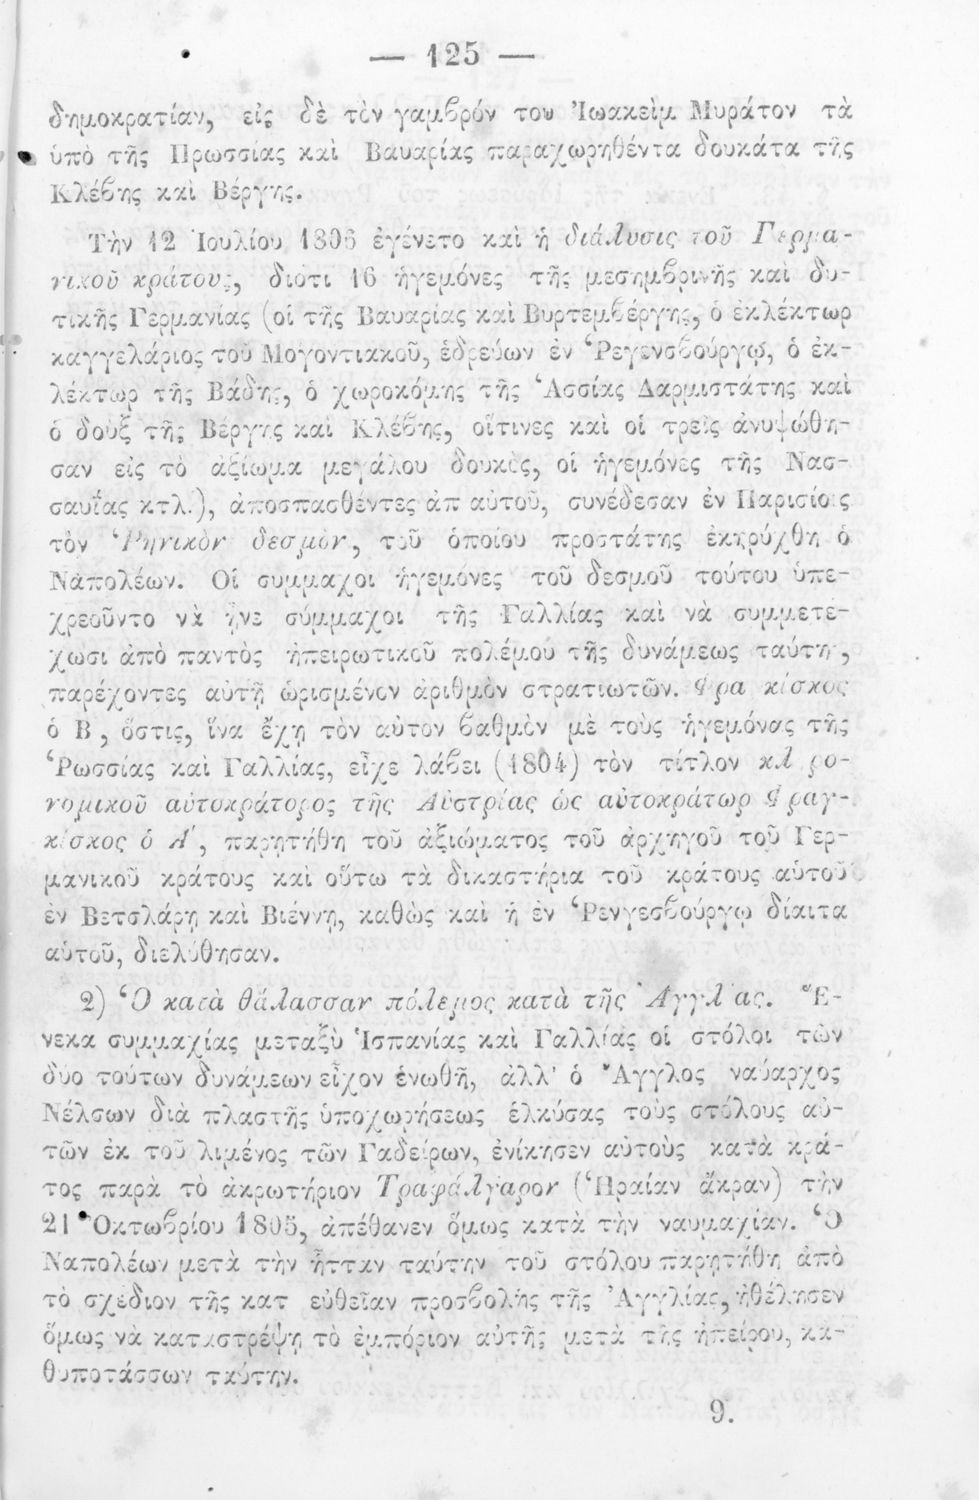 — 125 —
δημοκρατίαν, εἰς δὲ τὸν γαμβρόν του Ἰωακεὶμ Μυράτον τὰ
ὑπὸ τῆς Πρωσσίας καὶ Βαυαρίας παραχωρηθέντα δουκάτα τῆς
Κλέβης καὶ Βέργης.
Τὴν 12 Ἰουλίου 1806 ἐγένετο καὶ ἡ διάλυσις τοῦ Γερμα-
νικοῦ κράτους, διότι 16 ἡγεμόνες τῆς μεσημβρινῆς καὶ δυ-
τικῆς Γερμανίας (οἱ τῆς Βαυαρίας καὶ Βυρτεμβέργης, ὁ ἐκλέκτωρ
καγγελάριος τοῦ Μογοντιακοῦ, ἑδρεύων ἐν Ῥεγενσβούργῳ, ὁ ἐκ-
λέκτωρ τῆς Βάδης, ὁ χωροκόμης τῆς Ἁσσίας Δαρμιστάτης καὶ
ὁ δοὺξ τῆς Βέργης καὶ Κλέβης, οἵτινες καὶ οἱ τρεῖς ἀνυψώθη-
σαν εἰς τὸ ἀξίωμα μεγάλου δουκὸς, οἱ ἡγεμόνες τῆς Νασ-
σαυΐας κτλ.), ἀποσπασθέντες ἀπ αὐτοῦ, συνέδεσαν ἐν Παρισίοις
τὸν Ῥηνικὸν δεσμὸν, τοῦ ὁποίου προστάτης ἐκηρύχθη ὁ
Νάπολέων. Οἱ συμμαχοι ἡγεμόνες τοῦ δεσμοῦ τούτου ὑπε-
χρεοῦντο νὰ ἦνε σύμμαχοι τῆς Γαλλίας καὶ νὰ συμμετέ-
χωσι ἀπὸ παντὸς ἠπειρωτικοῦ πολέμου τῆς δυνάμεως ταύτης,
παρέχοντες αὐτῇ ὡρισμένον ἀριθμὸν στρατιωτῶν. Φραγκίσκος
ὁ Β, ὅστις, ἵνα ἔχῃ τὸν αὐτον βαθμὸν μὲ τοὺς ἡγεμόνας τῆς
Ῥωσσίας καὶ Γαλλίας, εἶχε λάβει (1804) τὸν τίτλον κληρο-
νομικοῦ αὐτοκράτορος τῆς Αὐστρίας ὡς αὐτοκράτωρ Φραγ-
κίσκος ὁ Α΄, παρῃτήθη τοῦ ἀξιώματος τοῦ ἀρχηγοῦ τοῦ Γερ-
μανικοῦ κράτους καὶ οὕτω τὰ δικαστήρια τοῦ κράτους αὐτοῦ
ἐν Βετσλάρῃ καὶ Βιέννῃ, καθὼς καὶ ἡ ἐν Ῥενγεσβούργῳ δίαιτα
αὐτοῦ, διελύθησαν.
2) Ὁ κατὰ θάλασσαν πόλεμος κατὰ τῆς Ἀγγλίας. Ἕ-
νεκα συμμαχίας μεταξὺ Ἱσπανίας καὶ Γαλλίας οἱ στόλοι τῶν
δυο τούτων δυνάμεων εἶχον ἑνωθῆ, ἀλλ’ ὁ Ἄγγλος ναύαρχος
Νέλσων διὰ πλαστῆς ὑποχωρήσεως ἑλκύσας τοὺς στόλους αὐ-
τῶν ἐκ τοῦ λιμένος τῶν Γαδείρων, ἐνίκησεν αὐτοὺς κατὰ κρά-
τος παρὰ τὸ ἀκρωτήριον Τραφάλγαρον (Ἡραίαν ἄκραν) τὴν
21 Ὀκτωβρίου 1805, ἀπέθανεν ὅμως κατὰ τὴν ναυμαχίαν. Ὁ
Ναπολέων μετὰ τὴν ἧτταν ταύτην τοῦ στόλου παρῃτήθη ἀπὸ
τὸ σχέδιον τῆς κατ εὐθεῖαν προσβολῆς τῆς Ἀγγλίας, ἠθέλησεν
ὅμως νὰ καταστρέψῃ τὸ ἐμπόριον αὐτῆς μετὰ τῆς ἠπείρου, κα-
θυποτάσσων ταύτην.
9.